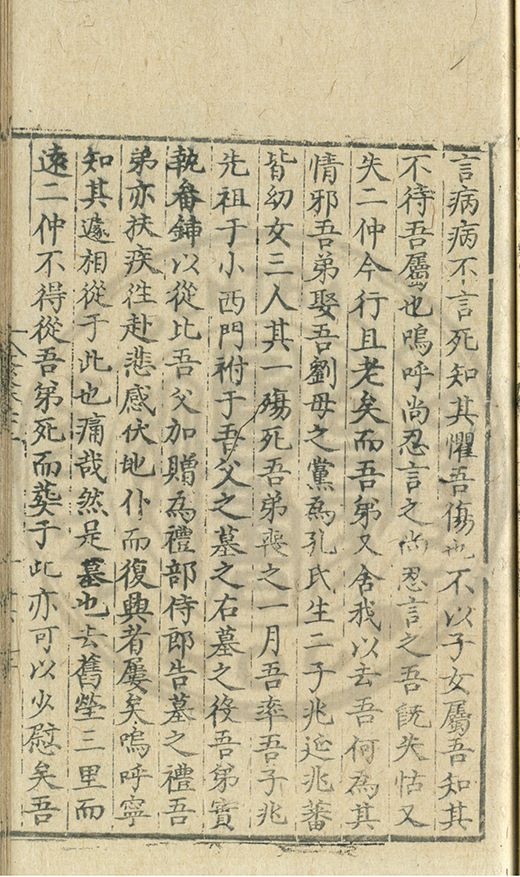 言病病不言死知其懼吾傷也不以子女屬吾知其
不待吾屬也嗚呼尚忍言之尚忍言之吾既失怙又
失二仲今行且老矣而吾弟又舍我以去吾何為其
情邪吾弟娶吾劉母之黨為孔氏生二子兆延兆蕃
皆幼女三人其一殤死吾弟喪之一月吾率吾子兆
先祖于小西門祔于吾父之墓之右墓之役吾弟實
執畚鍤以從比吾父加贈為禮部侍郎告墓之禮吾
弟亦扶疾徃赴悲感伏地仆而復興者屢矣嗚呼寧
知其遽相從于此也痛哉然是墓也去舊塋三里而
遠二仲不得從吾弟死而葬于此亦可以少慰矣吾